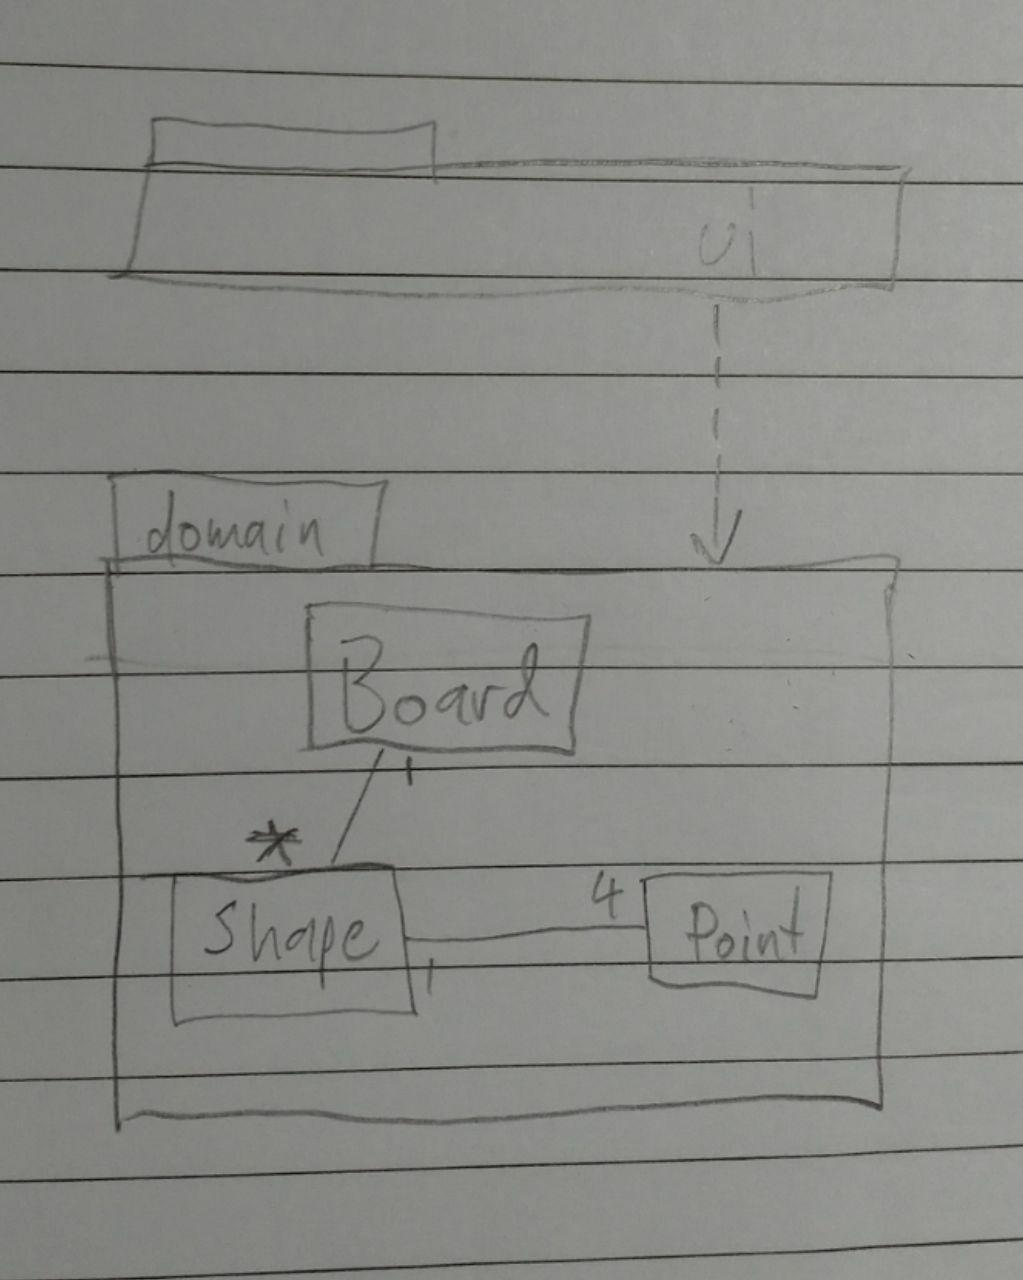 Ui
domain
Board
1
*
4
Shape
Point
1